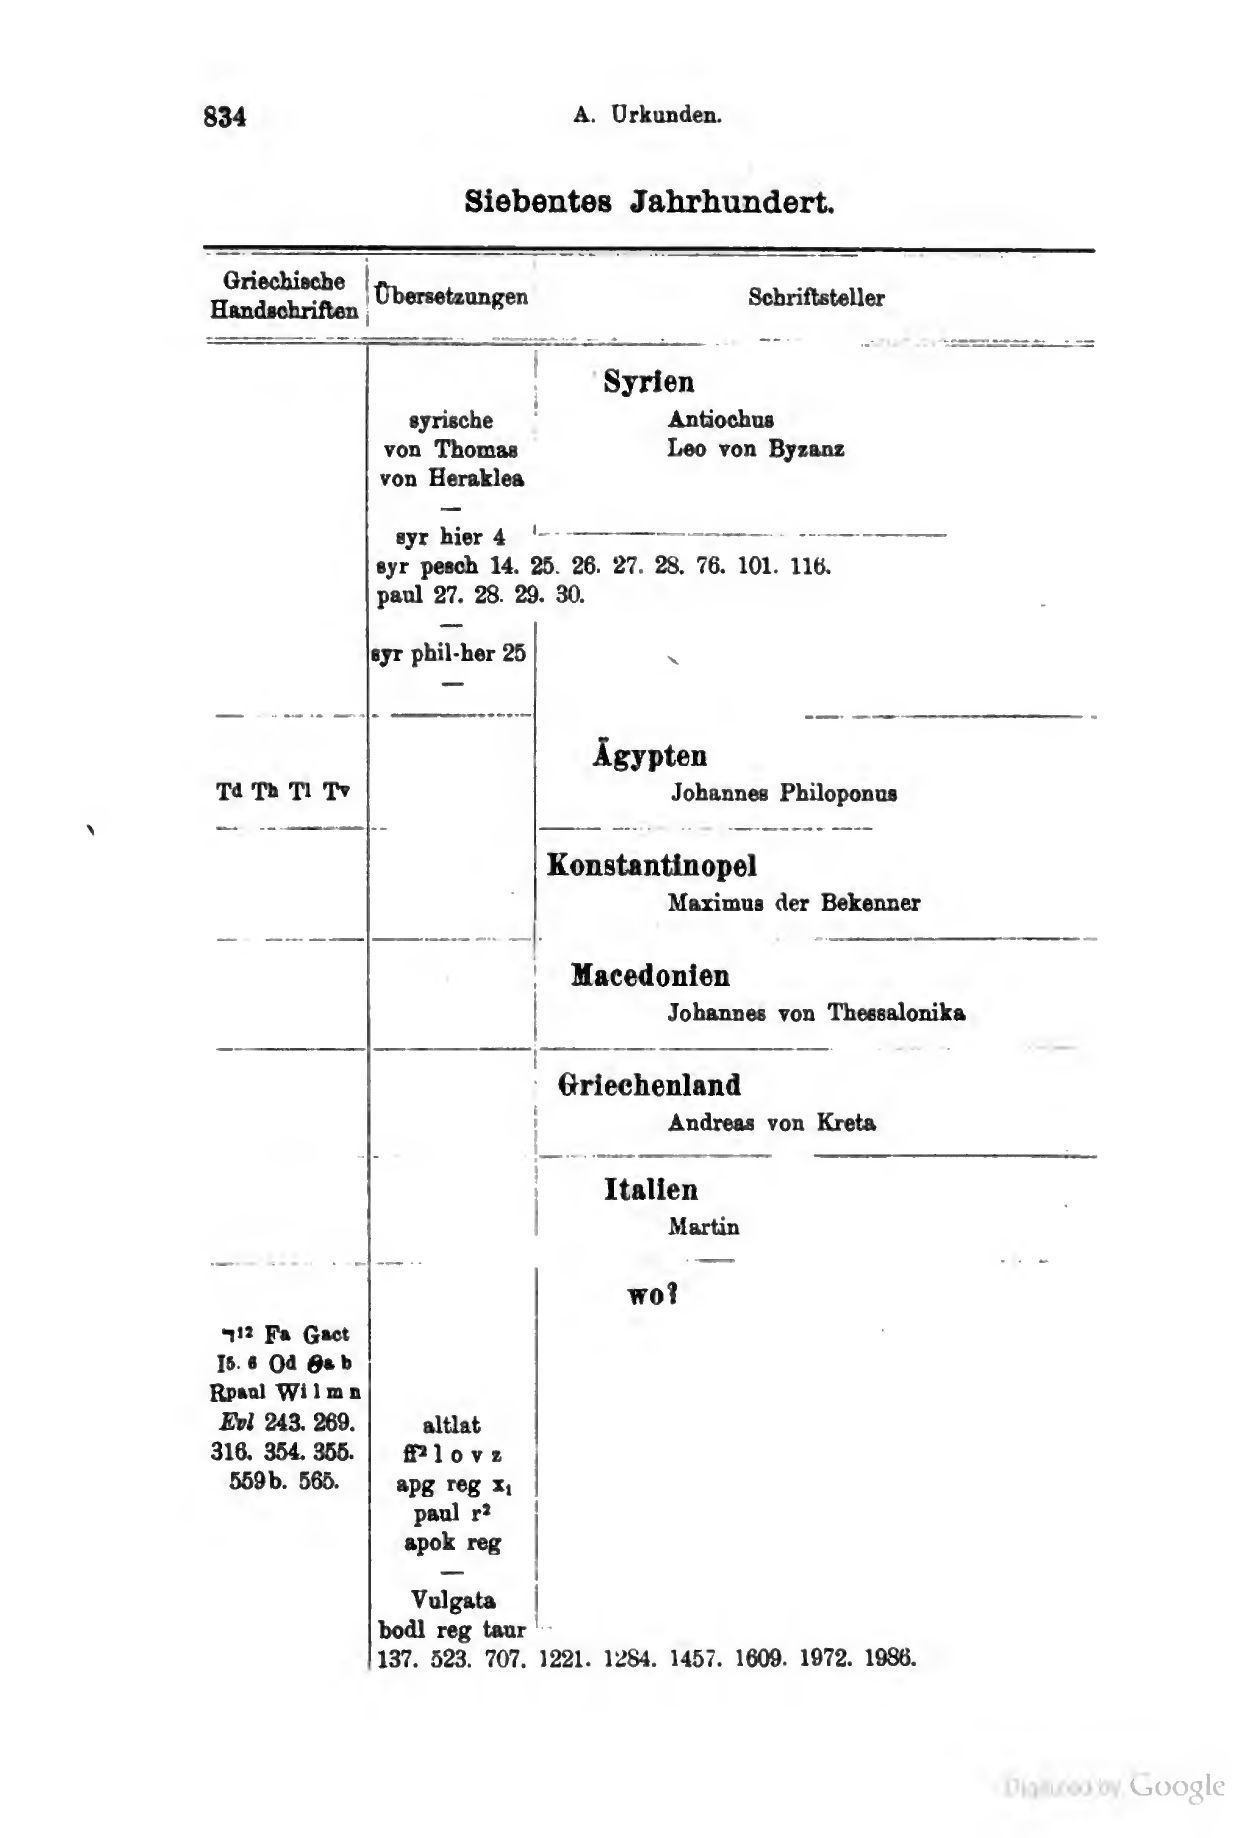 834
A. Urkunden.
Siebentes Jahrhundert.
Griechische Handschriften
Übersetzungen
Schriftsteller
Syrien
syrische
von Thomas
von Heraklea
—
syr hier 4
syr pesch 14. 25. 26. 27. 28. 76. 101. 116.
paul 27. 28. 29. 30.
—
syr phil-her 25
—
Antiochus
Leo von Byzanz
Ägypten
Td Th Tl Tv
Johannes Philoponus
Konstantinopel
Maximus der Bekenner
Macedonien
Johannes von Thessalonika
Griechenland
Andreas von Kreta
Italien
Martin
wo?
ד12 Fa Gact
I5. 6 Od Θa b
Rpaul Wi l m n
Evl 243. 269.
316. 354. 355.
559b. 565.
altlat
ff2 l o v z
apg reg x1
paul r2
apok reg
—
Vulgata
bodl reg taur
137. 523. 707. 1221. 1284. 1457. 1609. 1972. 1986.
Digitized by Google